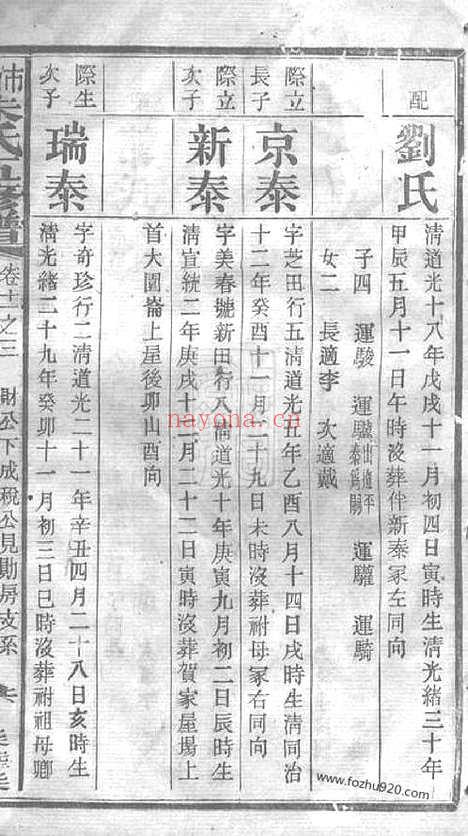 配
劉氏
清道光十八年戊戌十一月初四日寅時生清光緒三十年
甲辰五月十一日午時沒葬伴新泰冢左同向
子四 運駿 運驥出道平泰爲嗣 運驩 運騎
女二 長適李 次適戴
際立
長子
京泰
字芝田行五清道光五年乙酉八月十四日戌時生清同治
十二年癸酉十一月二十九日未時沒葬祔母冢右同向
際立
次子
新泰
字美春號新田行八清道光十年庚寅九月初二日辰時生
清宣統二年庚戌十二月二十二日寅時沒葬賀家屋場上
首大圍崙上屋後卯山酉向
際生
次子
瑞泰
字奇珍行二清道光二十一年辛丑四月二十八日亥時生
清光緒二十九年癸卯十一月初三日巳時沒葬祔祖母鄉
氏五修譜
卷十之三
財公下成稅公見勛房支系
七
nayona.cn
www.fozhu920.com